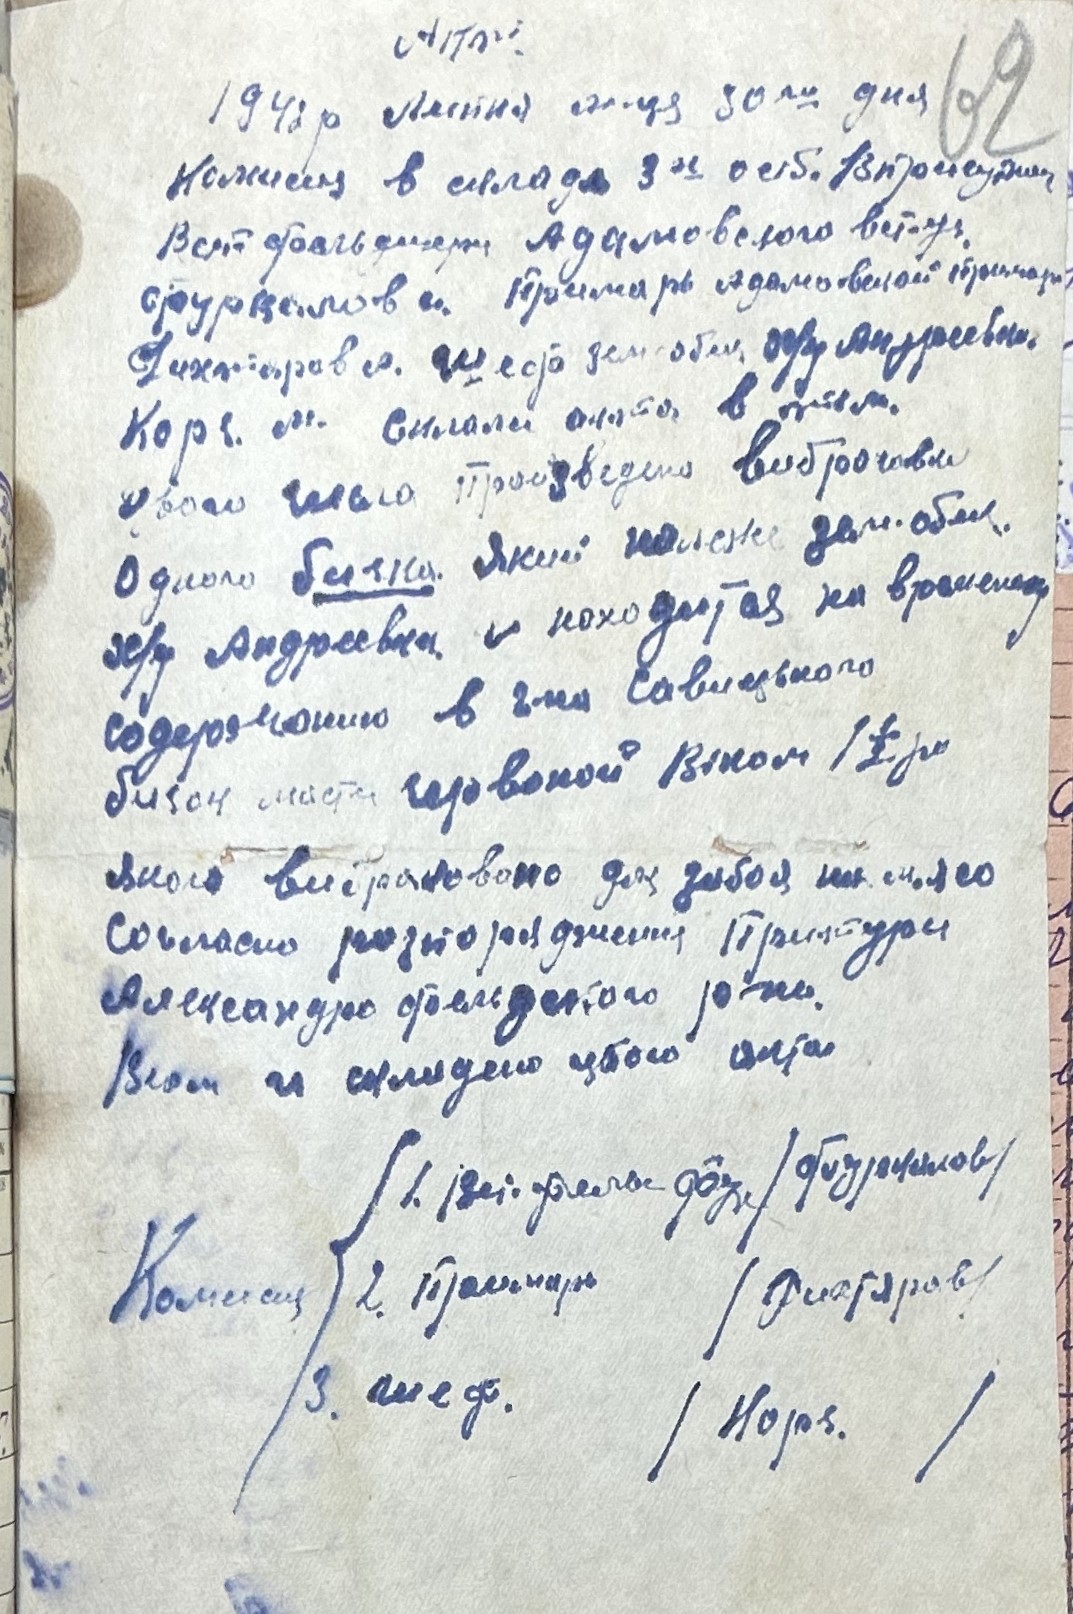 Акт.
62
1943 р Липня м-ця 30го дня
Комисия в складе 3х осіб. В присутніи
Вет фельдшери Адамовського вет-ц.
Фуржалов и. Примарь Адамовской Примари
Дихтяров А. Шеф зем-общ х/у Андреевка.
Корз. М. Склали акта в тім.
Цього числа произведено вибраковки
Одного бичка. Який належе зем-общ.
х/у Андреевка и находится на временому
содержанию в г-на Савицького
бичок масти червоной Віком 1 1/2 ро
Якого вибраковано для забоя на мясо
Согласно розпоряджения Притури
Александрофельдского р-на.
В чом и складено цього акта
Комисия
1. Вет. фельд- /Фуржалов/
2. Примарь /Дихтяров/
3. шеф. /Корз. /